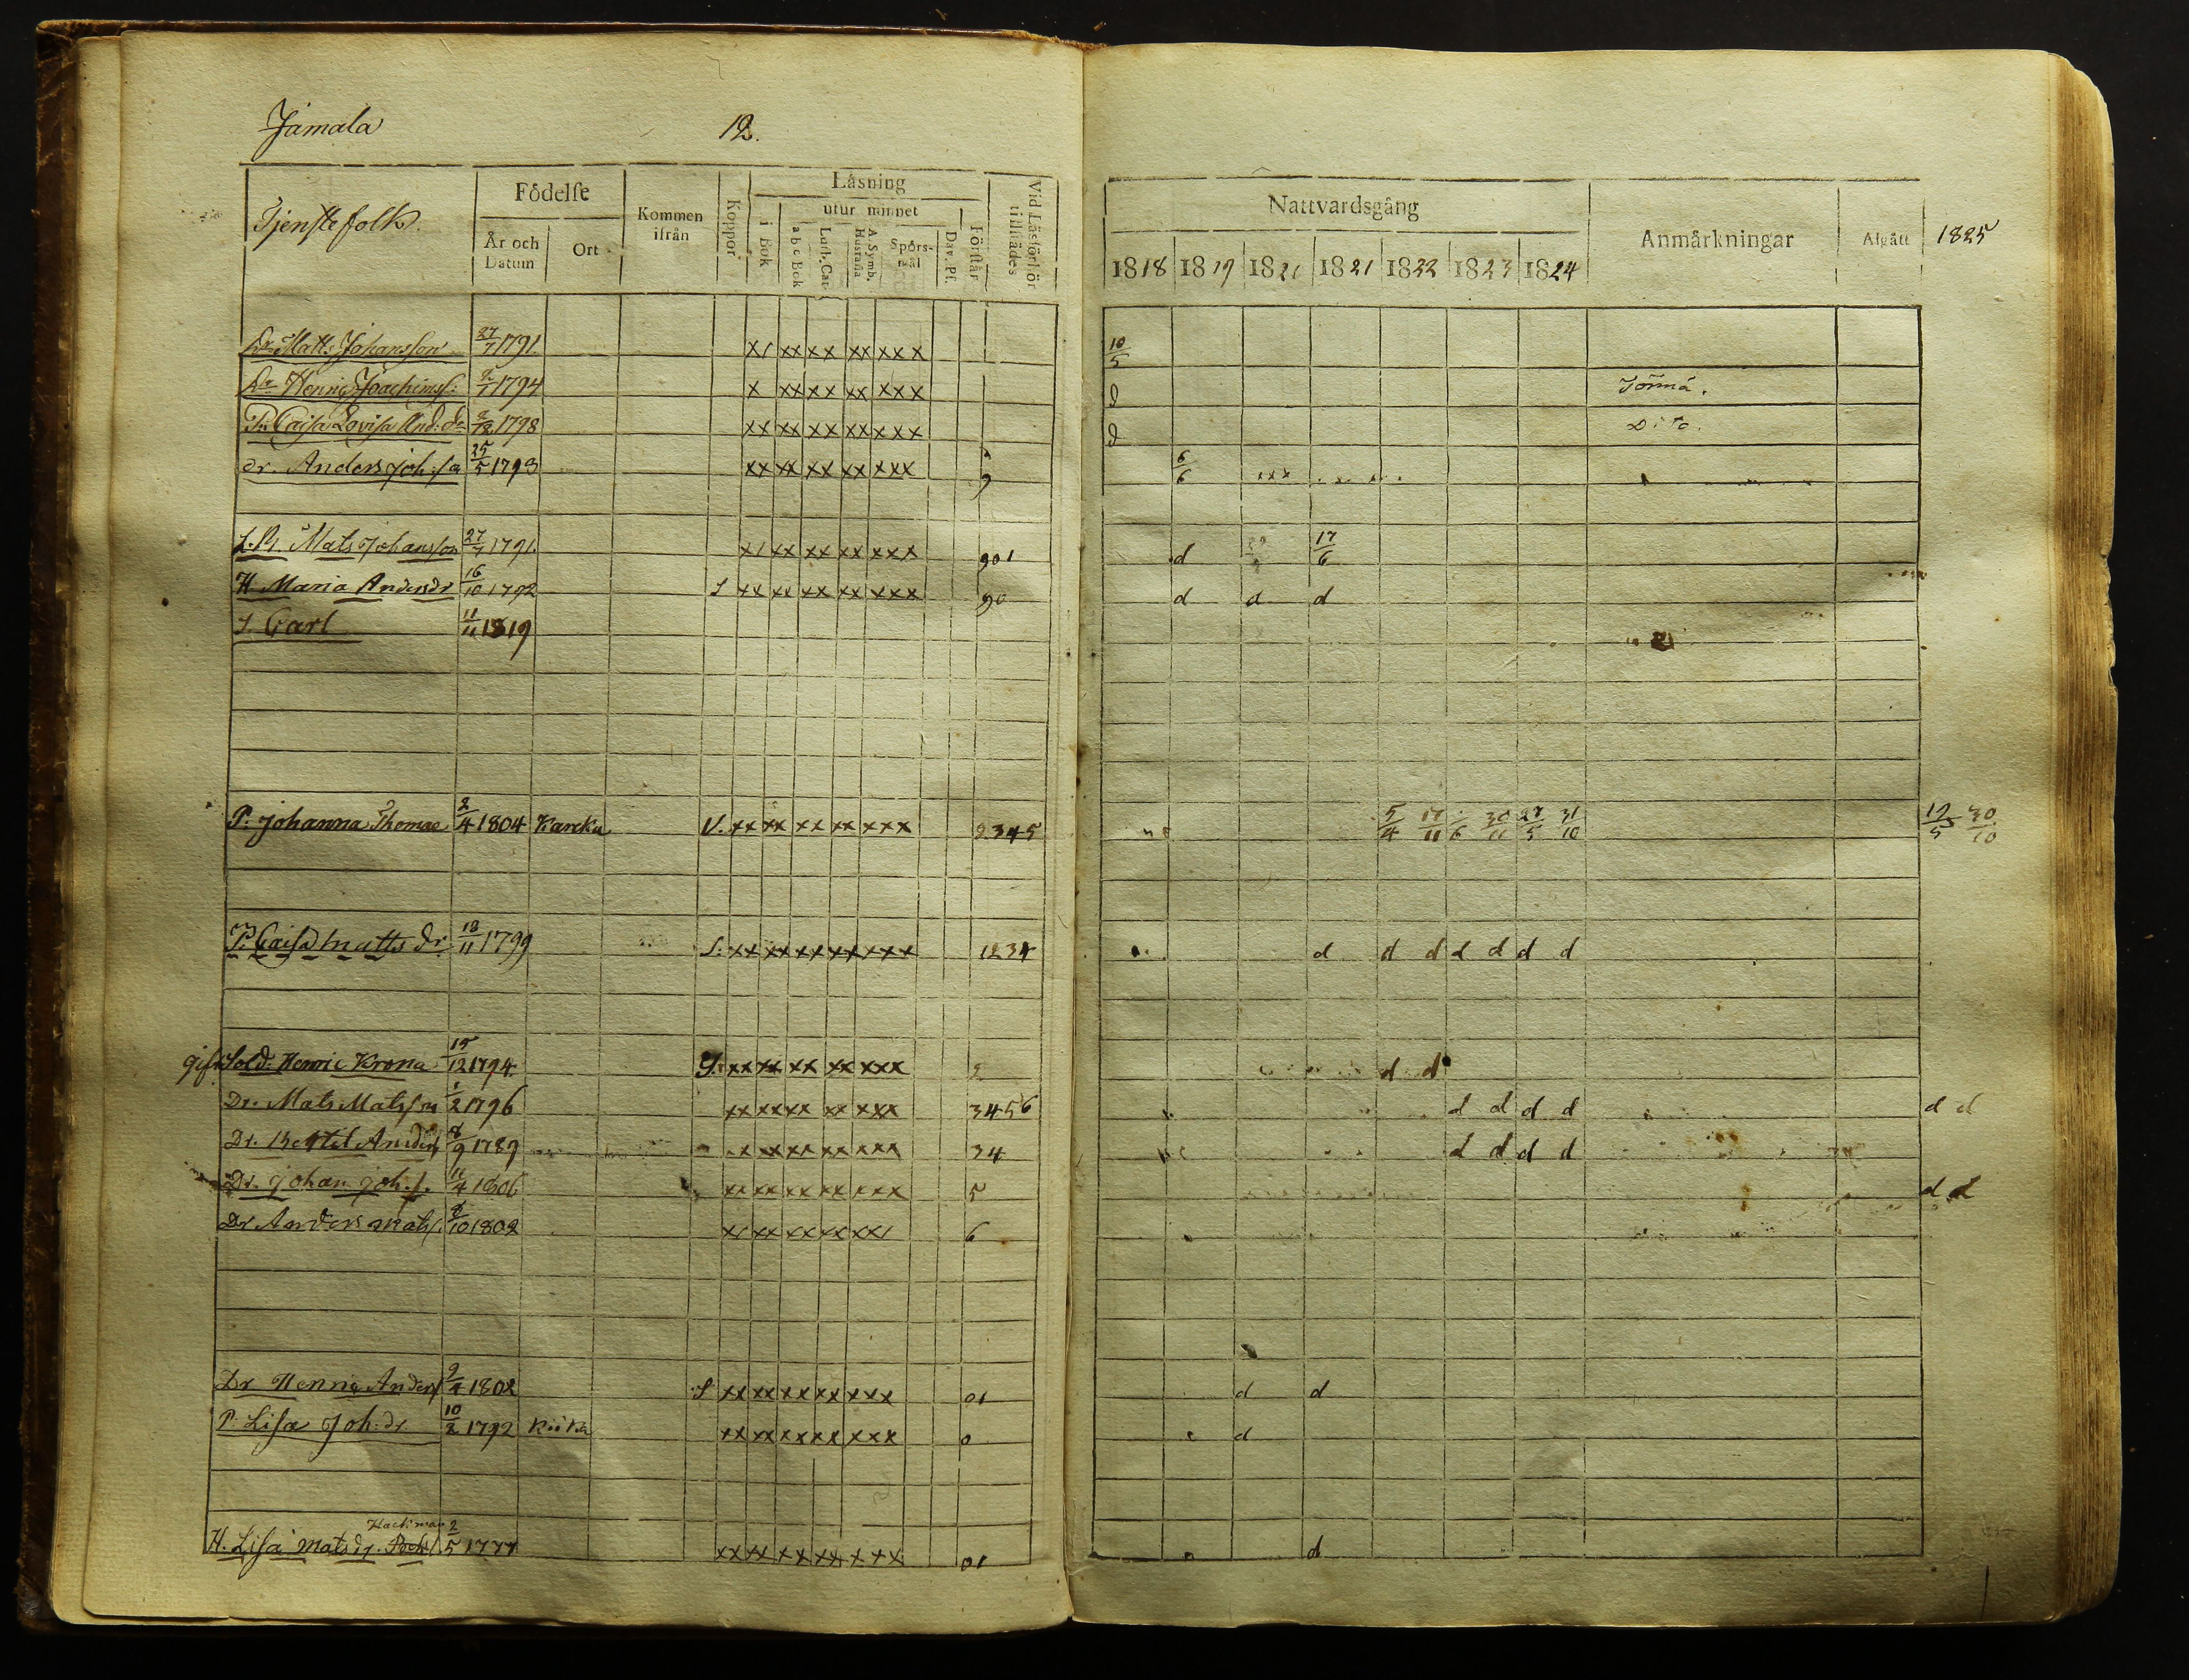 Jamala
12.
Tjenstefolk.
Födelse
År och Datum
Ort
Kommen ifrån
Koppor
Läsning
i Bok
utur minnet
a b c Bok
Luth. Cat
A. Symb. Hustafla
Spörsmål
Dav. Ps.
Förstår
Vid Läsförhör tillstädes
Nattvardsgång
1818 1819 1820 1821 1822 1823 1824
Anmärkningar
Afgått
1825
Dr Matts Johansson 27/7 1791. x/ xx xx xx xxx 10/5
Dr Henric Joachimss: 1794 x xx xx xx xxx d
P. Caisa Lovisa And: dr 1798 xx xx xx xx xxx d Dito.
dr. Anders Joh:sa 25/5 1793 xx xx xx xx xxx 9 6/6
Mats Johansson 27/7 1791. x/ xx xx xx xxx 901 d 17/6
H. Maria Andersdr 16/10 1792 S xx xx xx xx xxx 90 d d d
S. Carl 11/11 1819
P. Johanna Thomae 2/4 1804 Karcku V. xx xx xx xx xxx 2345 5/4 17/11 /6 30/11 27/5 31/10 12/5 30/10
P. Caisa Matts dr. 18/11 1799 S. xx xx xx xx xxx 1234 d d d d d d d
gift Sold. Henric Krona 15/12 1794. xx xx xx xx xxx 2 d d
Dr. Mats Matsson 1/2 1796 xx xx xx xx xxx 3456 d d d d d d
Dr. Bertil Anders 8/9 1789 xx xx xx xx xxx 34 d d d d
Dr. Johan Joh.s. 11/4 1806 xx xx xx xx xxx 5 d d
Dr Anders Mats. 8/10 1802 x/ xx xx xx xx/ 6
Dr Henric Anders 9/4 1802 S xx xx xx xx xxx 01 d d
P. Lisa Joh:dr. 10/2 1792 xx xx xx xx xxx 0 d
Hackman
H. Lisa Matsdr. 2/5 1777 xx xx xx xx xxx 01 d